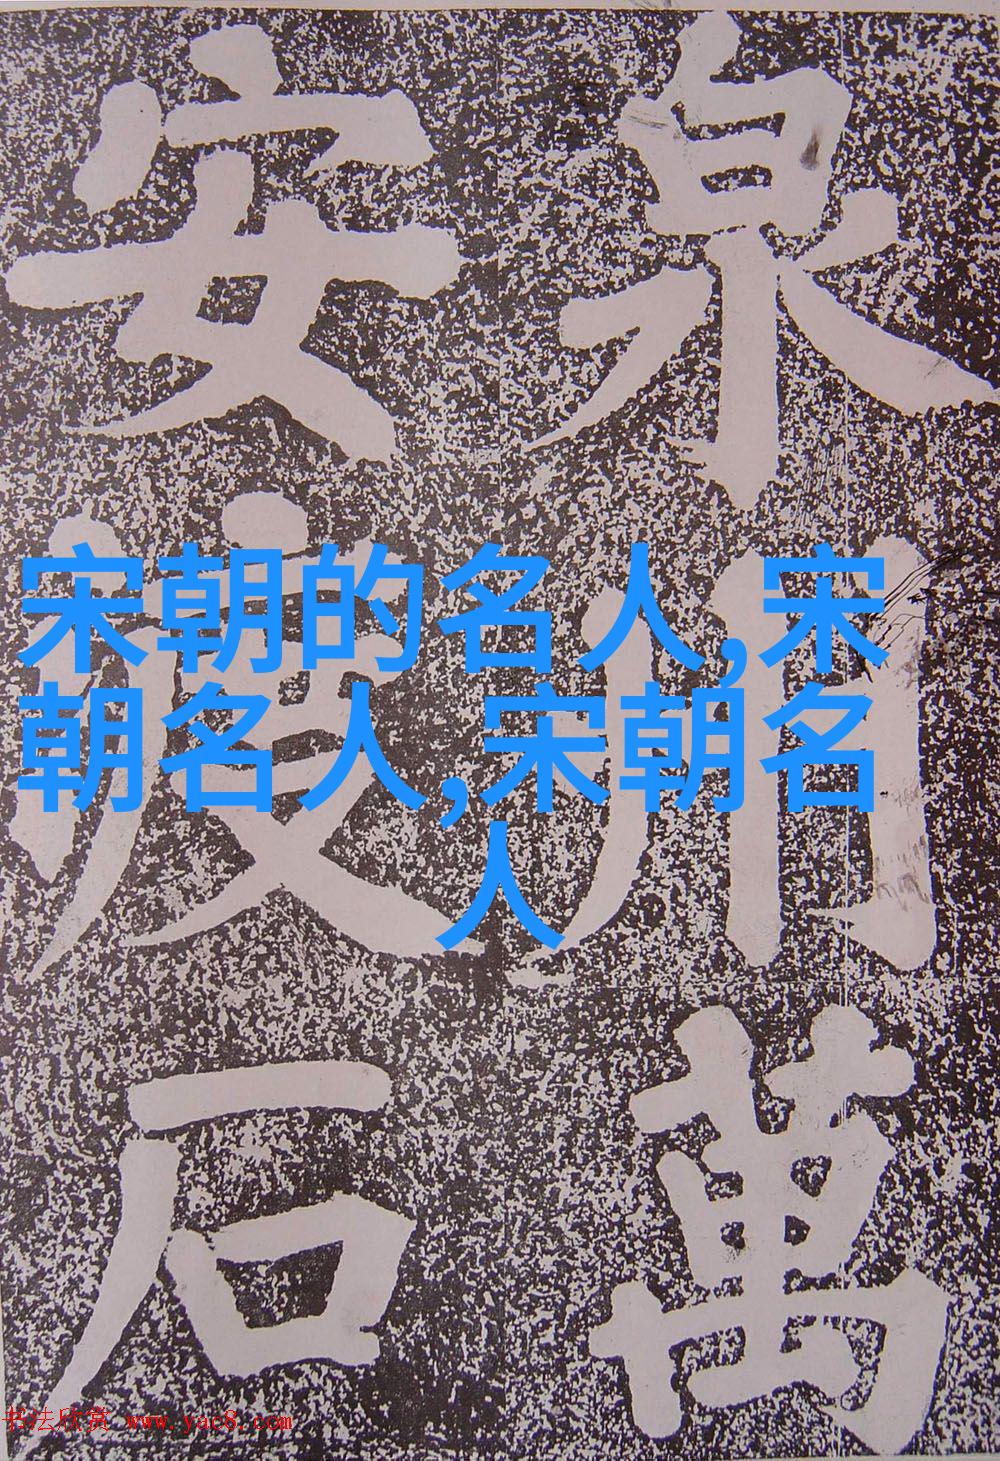 泉州萬
安渡石
宋朝的名人,宋
朝名人,宋朝名
人
书法欣赏 www.yac8.com